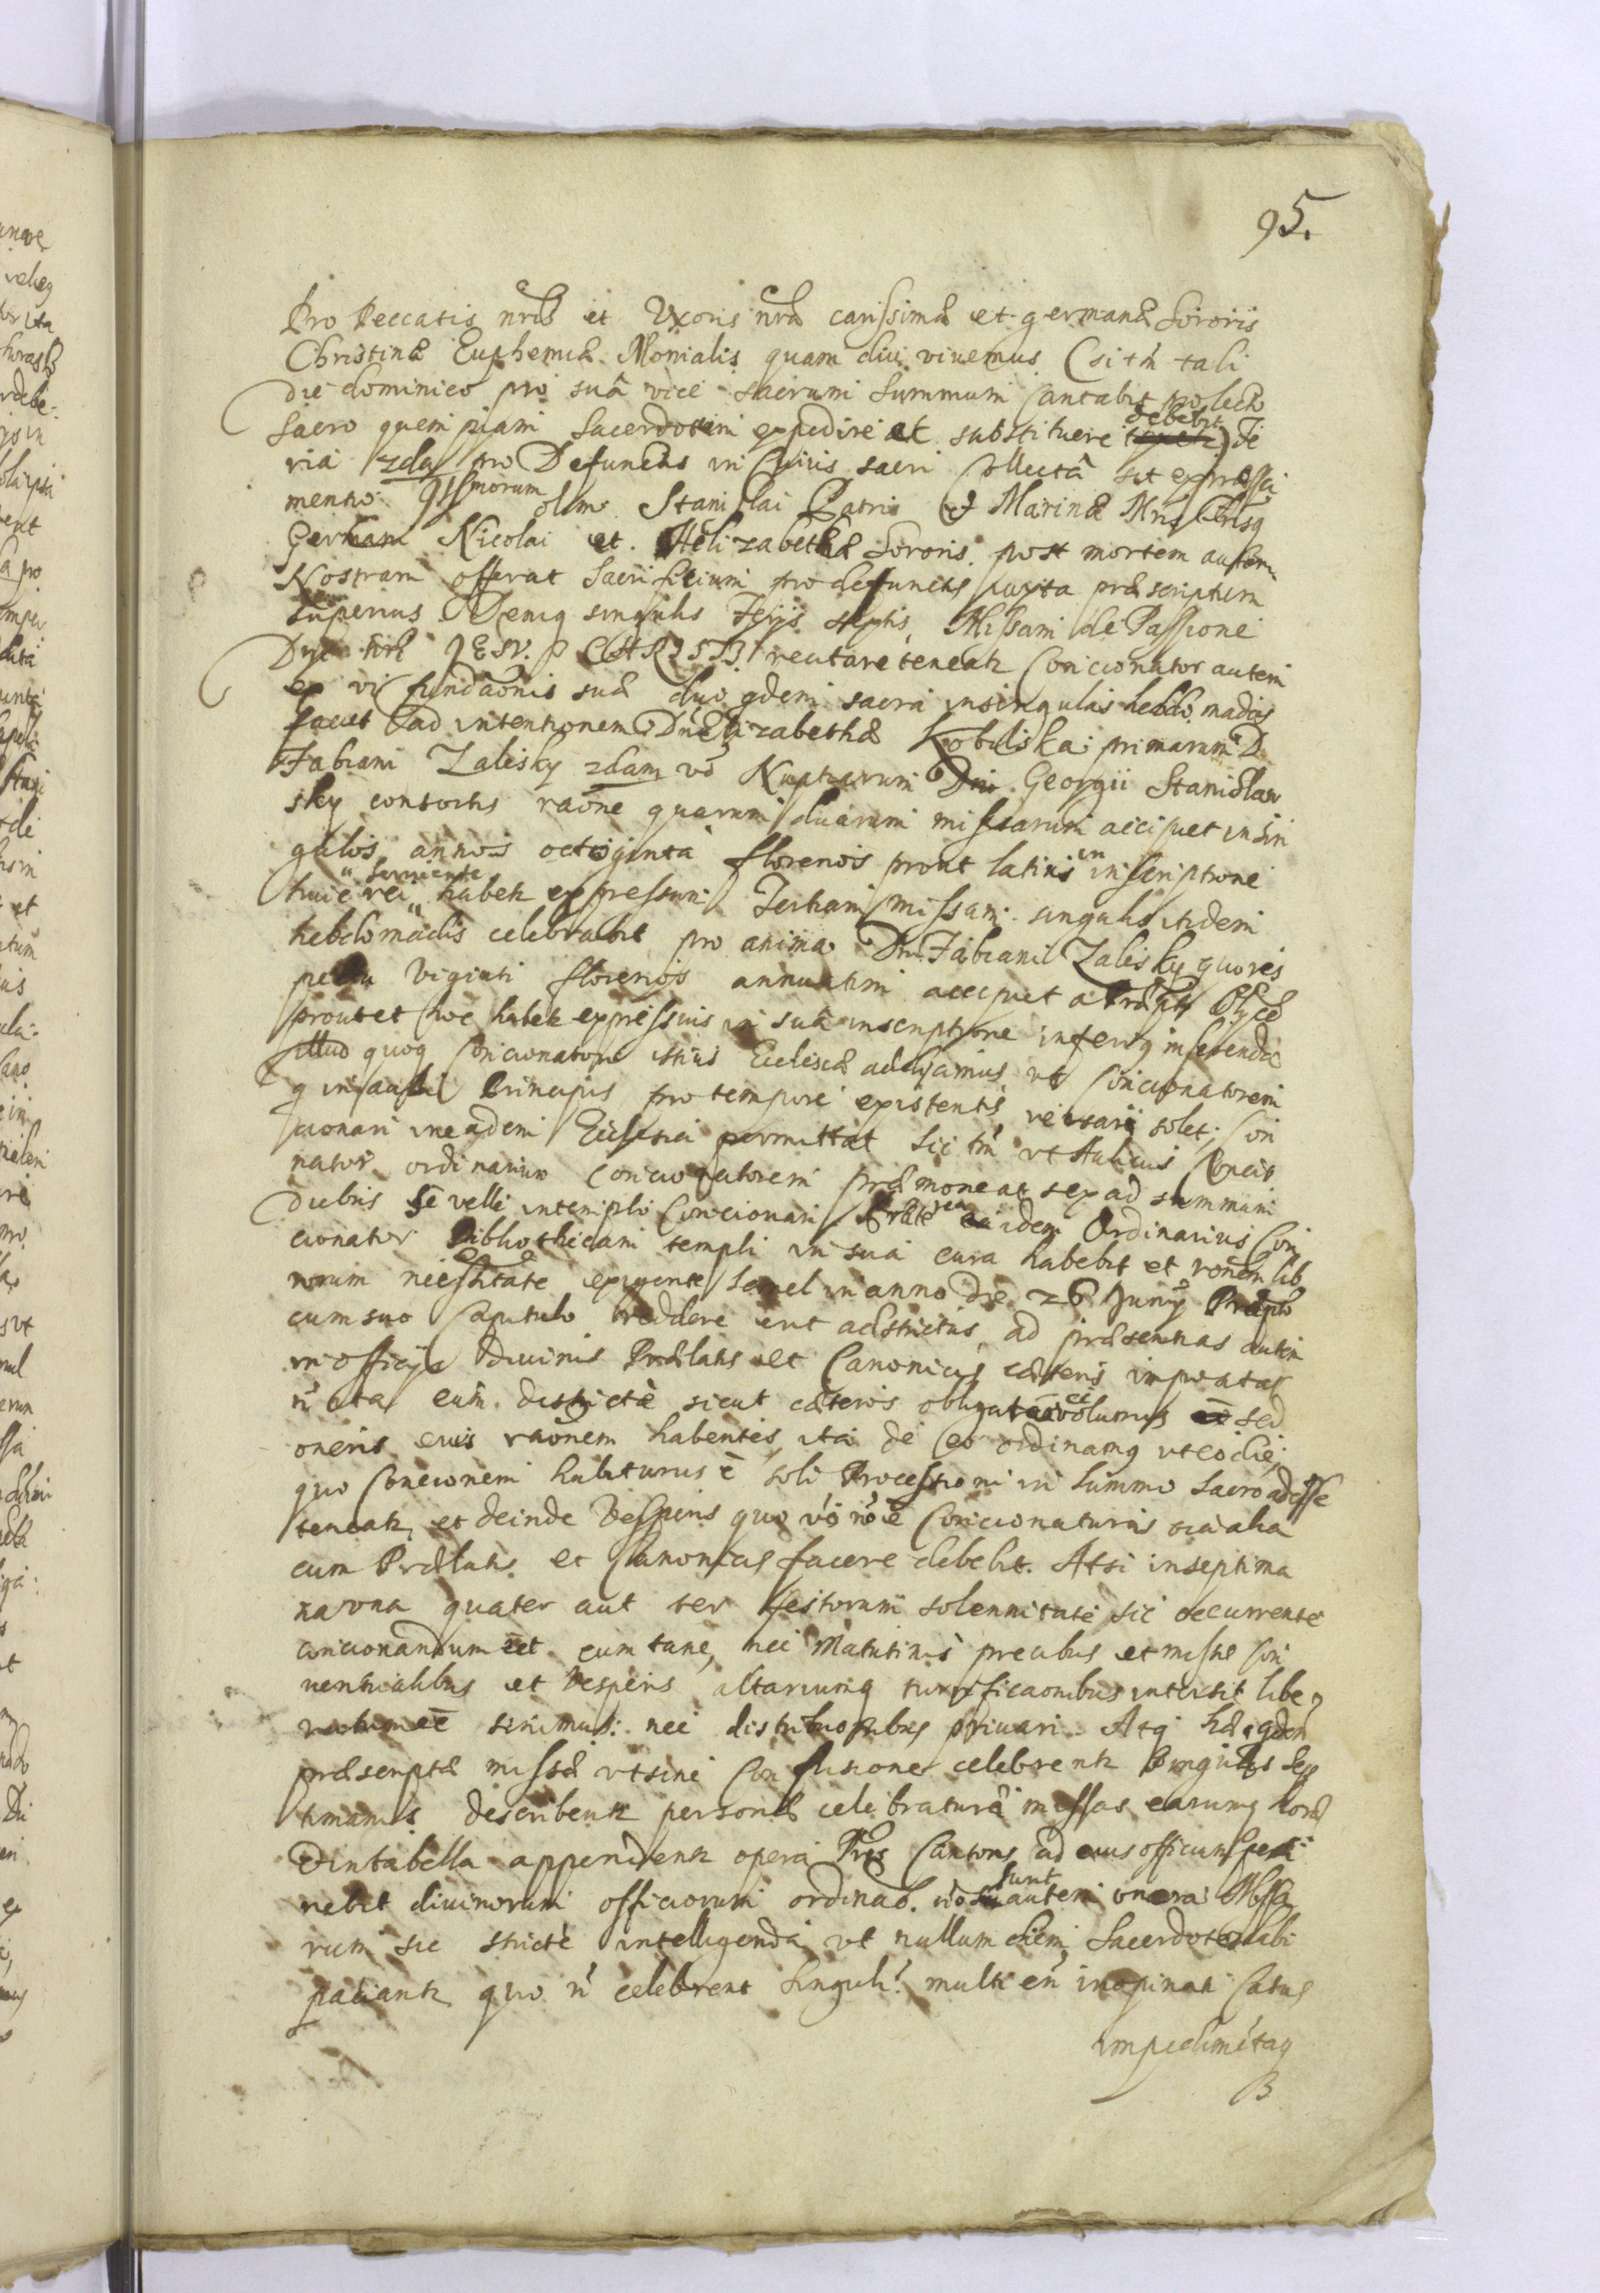 95.
Pro Peccatis nris et Uxoris nræ carissimæ et germanæ Sororis
Christinæ Euphemiæ Monialis quam diu vivemus (si tn tali
die dominico pro suâ vice sacrum summum cantabit pro lecto
Sacro quempiam Sacerdotem expedire et substituere debebit) Fe
ria 2da pro Defunctis in cuius sacri Collectâ sit expressa
mentio Illmorum olim Stanislai Patris et Marinæ Mris
Germani Nicolai et Helizabethæ Sororis post mortem autem
Nostram offerat Sacrificium pro defunctis iuxta præscriptum
superius Deniq singulis Ferijs septis Missam de Passione
Dni nri IESV CHRISTI recitare teneatr Concionator autem
ex vi fundaonis suæ duo qdem sacra in singulas hebdomadas
faciet ad intentionem Dnæ Elizabethæ Kobilska primarum D
Fabiani Zalisky 2dam vo Nuptiarum Dni Georgii Stanislaw
sky consortis raone quarum duarum missarum accipiet in sin
gulos annos octoginta florenos prout latius in inscriptione
huic rei serviente habetr expressum Tertiam missam singulis itidem
hebdomadis celebrabit pro anima Dni Fabiani Zalisky quo res
pectu viginti florenos annuatim accipiet a
prout et hoc habetr expressius in suâ inscriptione inferiq inserenda
Illud quoq Concionatori istius Ecclesiæ adijcimus ut Concionatorem
q in aula Principis pro tempore existentis versari solet, Con
cionari in eadem Ecclesia permittat sic tn ut Aulicus Concio
nator ordinarium Concionatorem præmoneat sex ad summum
diebus se velle in templo Concionari Præterea idem Ordinarius Con
cionator Bibliothecam templi in sua cura habebit et ronem lib
rorum necessitate exigente semel in anno die 26 Junij Præpto
cum suo Capitulo reddere erit adstrictus, ad præsentias autem
in officijs divinis Prælatis et Canonicis cæteris
n ita eum districtè sicut cæteros obligatum volumus sed
oneris eius raonem habentes, ita de eo ordinamq ut eo die
quo Concionem habiturus e soli Processioni in summo Sacro adesse
teneatr et deinde Vesperis quo vo no e Concionaturus oia alia
cum Prælatis et Canonicis facere debebit. At si in septima
na una quater aut ter festorum solennitate sic occurrente
concionandum eet eum tunc, nec Matutinis precibus et missæ Con
ventualibus et Vesperis altariumq turificaonibus intersit libe
rum ee sinimus: nec distributionibus privari. Atq hæ qdem
præscriptæ missæ ut sine Confusione celebrentr singulis Sep
timanis describentr personæ celebraturæ missas earumq horæ
Et in tabella appendentr opera Pris Cantoris ad cuius officium perti
nebit divinorum officiorum ordinao. no sunt autem onera Missa
rum sic strictè intelligenda ut nullum diem Sacerdotes labi
patiantr quo n celebrent singuli: multi en inopinati Casus
impedimetaq
B